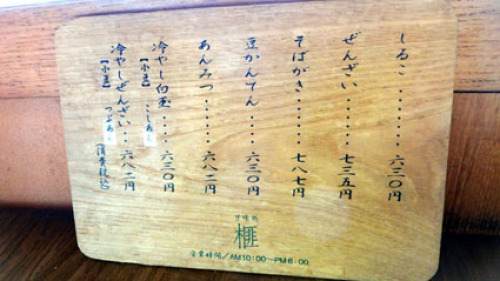 しるこ・・・・・・・六三〇円
ぜんざい・・・・・七三五円
そばがき・・・・・七八七円
豆かんてん・・・・六三〇円
あんみつ・・・・・六八二円
冷やし白玉・・・六三〇円
【小豆】 こしあん
冷やしぜんざい・・六八二円
【小豆】 つぶあん
消費税込
甘味処
榧
営業時間/AM10:00〜PM6:00